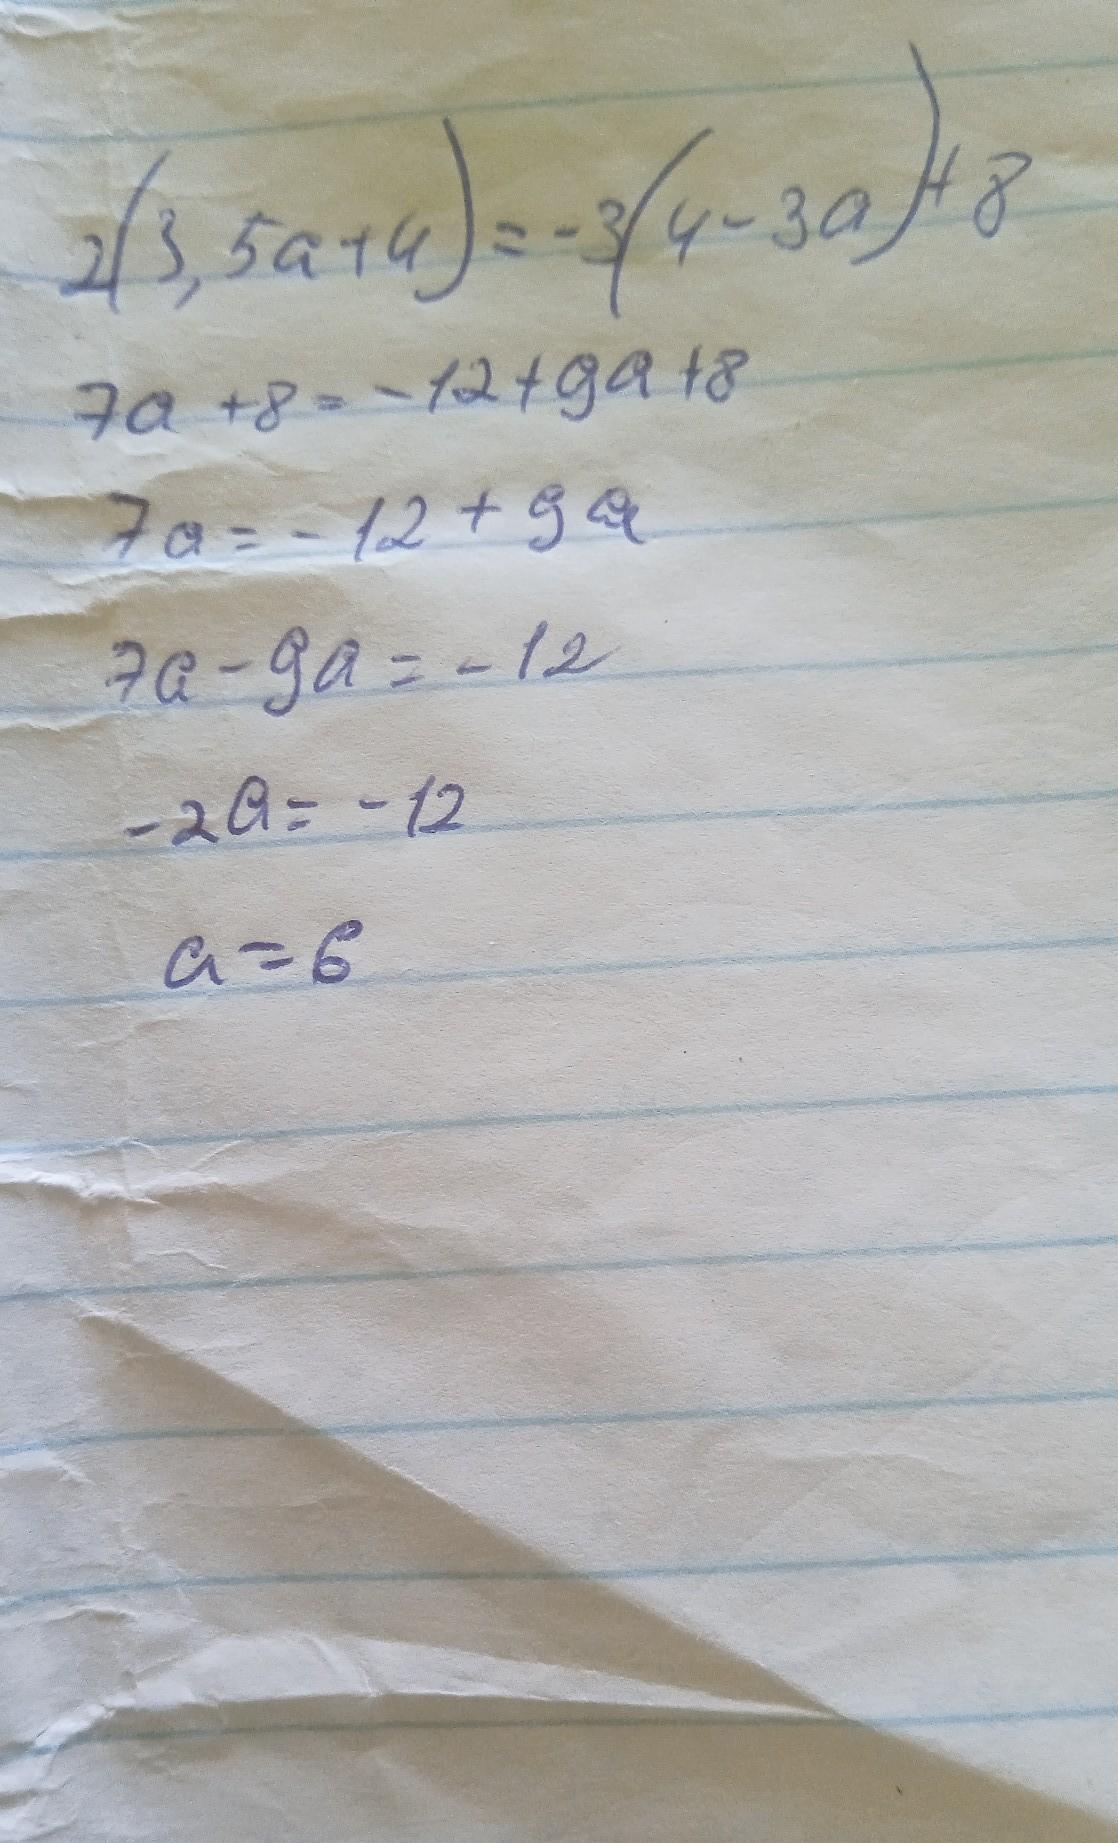 2(3,5a+4)=-3(4-3a)+8
7a+8=-12+9a+8
7a=-12+9a
7a-9a=-12
-2a=-12
a=6